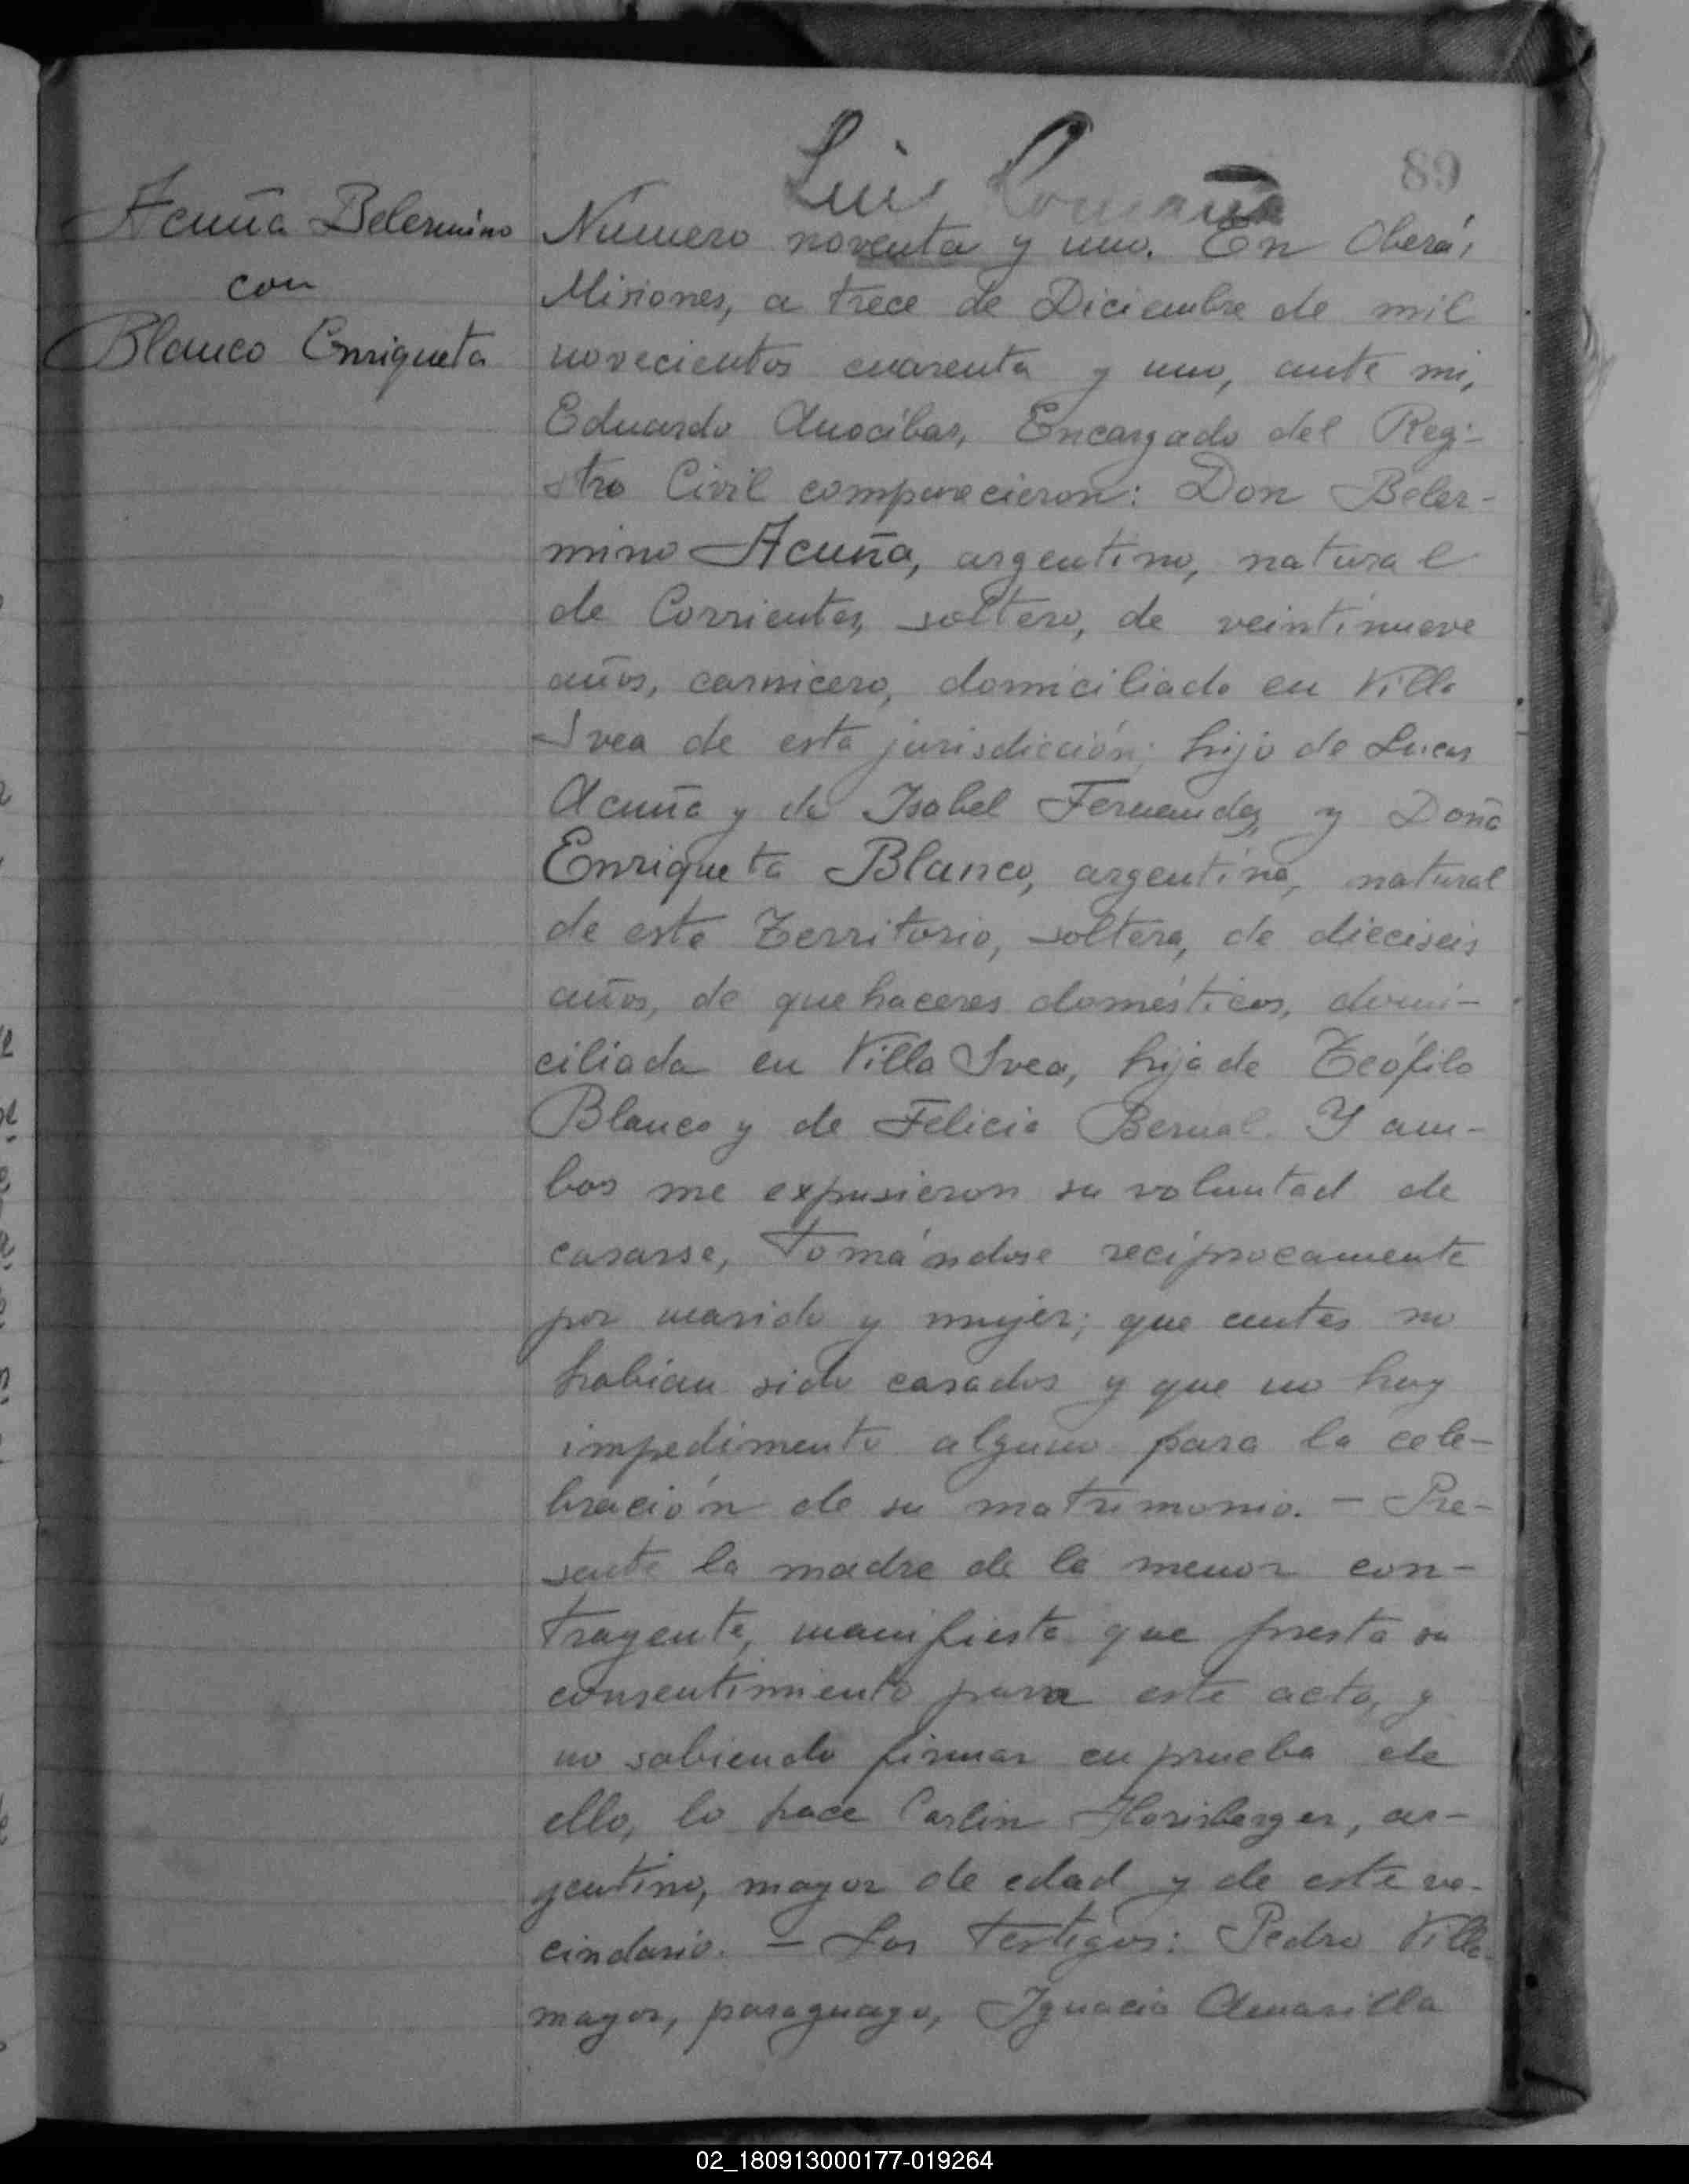 89
Luis Romaña
Acuña Belermino
con
Blanco Enriqueta
Número noventa y uno. En Oberá,
Misiones, a trece de Diciembre de mil
novecientos cuarenta y uno, ante mi,
Eduardo Anocibar, Encargado del Regi-
stro Civil comparecieron: Don Beler-
mino Acuña, argentino, natural
de Corrientes, soltero, de veintinueve
años, carnicero, domiciliado en Villa
Svea de esta jurisdicción; hijo de Lucas
Acuña y de Isabel Fernandez, y Doña
Enriqueta Blanco, argentina, natural
de este Territorio, soltera, de dieciseis
años, de quehaceres domésticos, domi-
ciliada en Villa Svea, hija de Teófilo
Blanco y de Felicia Bernal. Y am-
bos me expusieron su voluntad de
casarse, tomándose recíprocamente
por marido y mujer; que antes no
habian sido casados y que no hay
impedimento alguno para la cele-
bración de su matrimonio. - Pre-
sente la madre de la menor con-
trayente, manifiesta que presta su
consentimiento para este acto, y
no sabiendo firmar en prueba de
ello, lo hace Carlin Horisberger, ar-
gentino, mayor de edad y de este ve-
cindario. - Los testigos: Pedro Villa-
mayor, paraguayo, Ignacia Amarilla
02_180913000177-019264